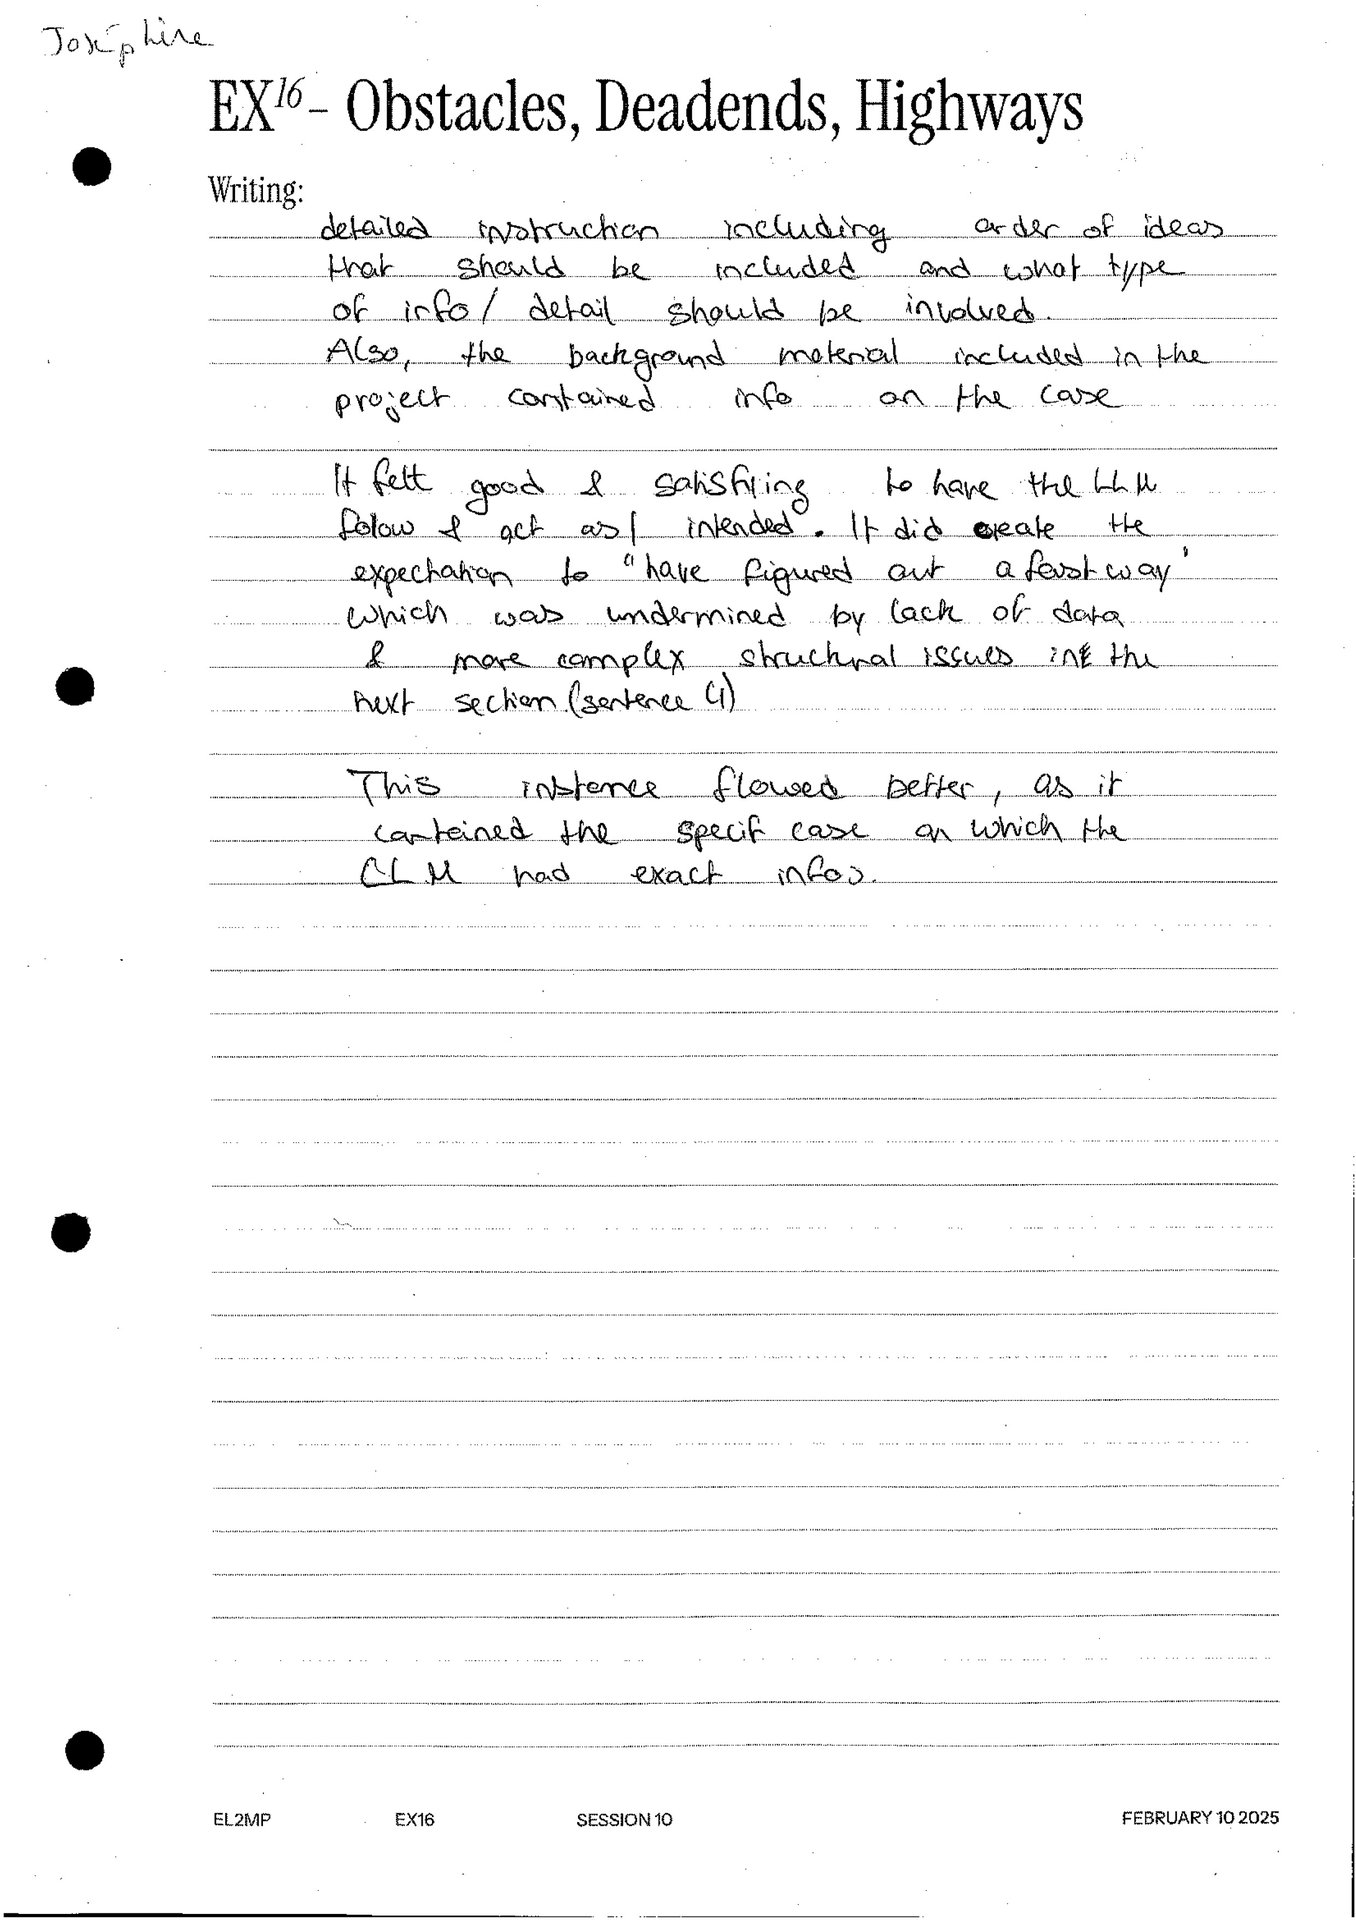 Joséphine
EX16 – Obstacles, Deadends, Highways
Writing:
detailed instruction including order of ideas
that should be included and what type
of info/ detail should be involved.
Also, the background material included in the
project contained info on the case
It felt good & satisfiing to have the LLM
folow & act as/ intended. It did create the
expectation to "have figured out a fast way"
which was undermined by lack of data
& more complex structural issues in the
next section (sentence 4)
This instance flowed better, as it
contained the specif case on which the
LLM had exact infos.
EL2MP EX16 SESSION 10 FEBRUARY 10 2025